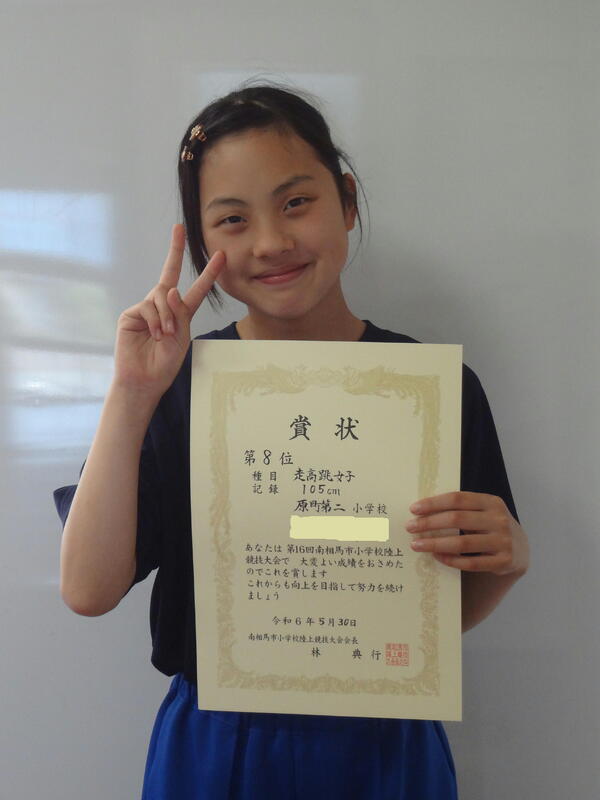 賞状
第8位
種目 走高跳女子
記録 105cm
原町第二 小学校
あなたは 第16回南相馬市小学校陸上
競技大会で 大変よい成績をおさめた
のでこれを賞します
これからも向上を目指して努力を続け
ましょう
令和6年5月30日
南相馬市小学校陸上競技大会会長
林 典行